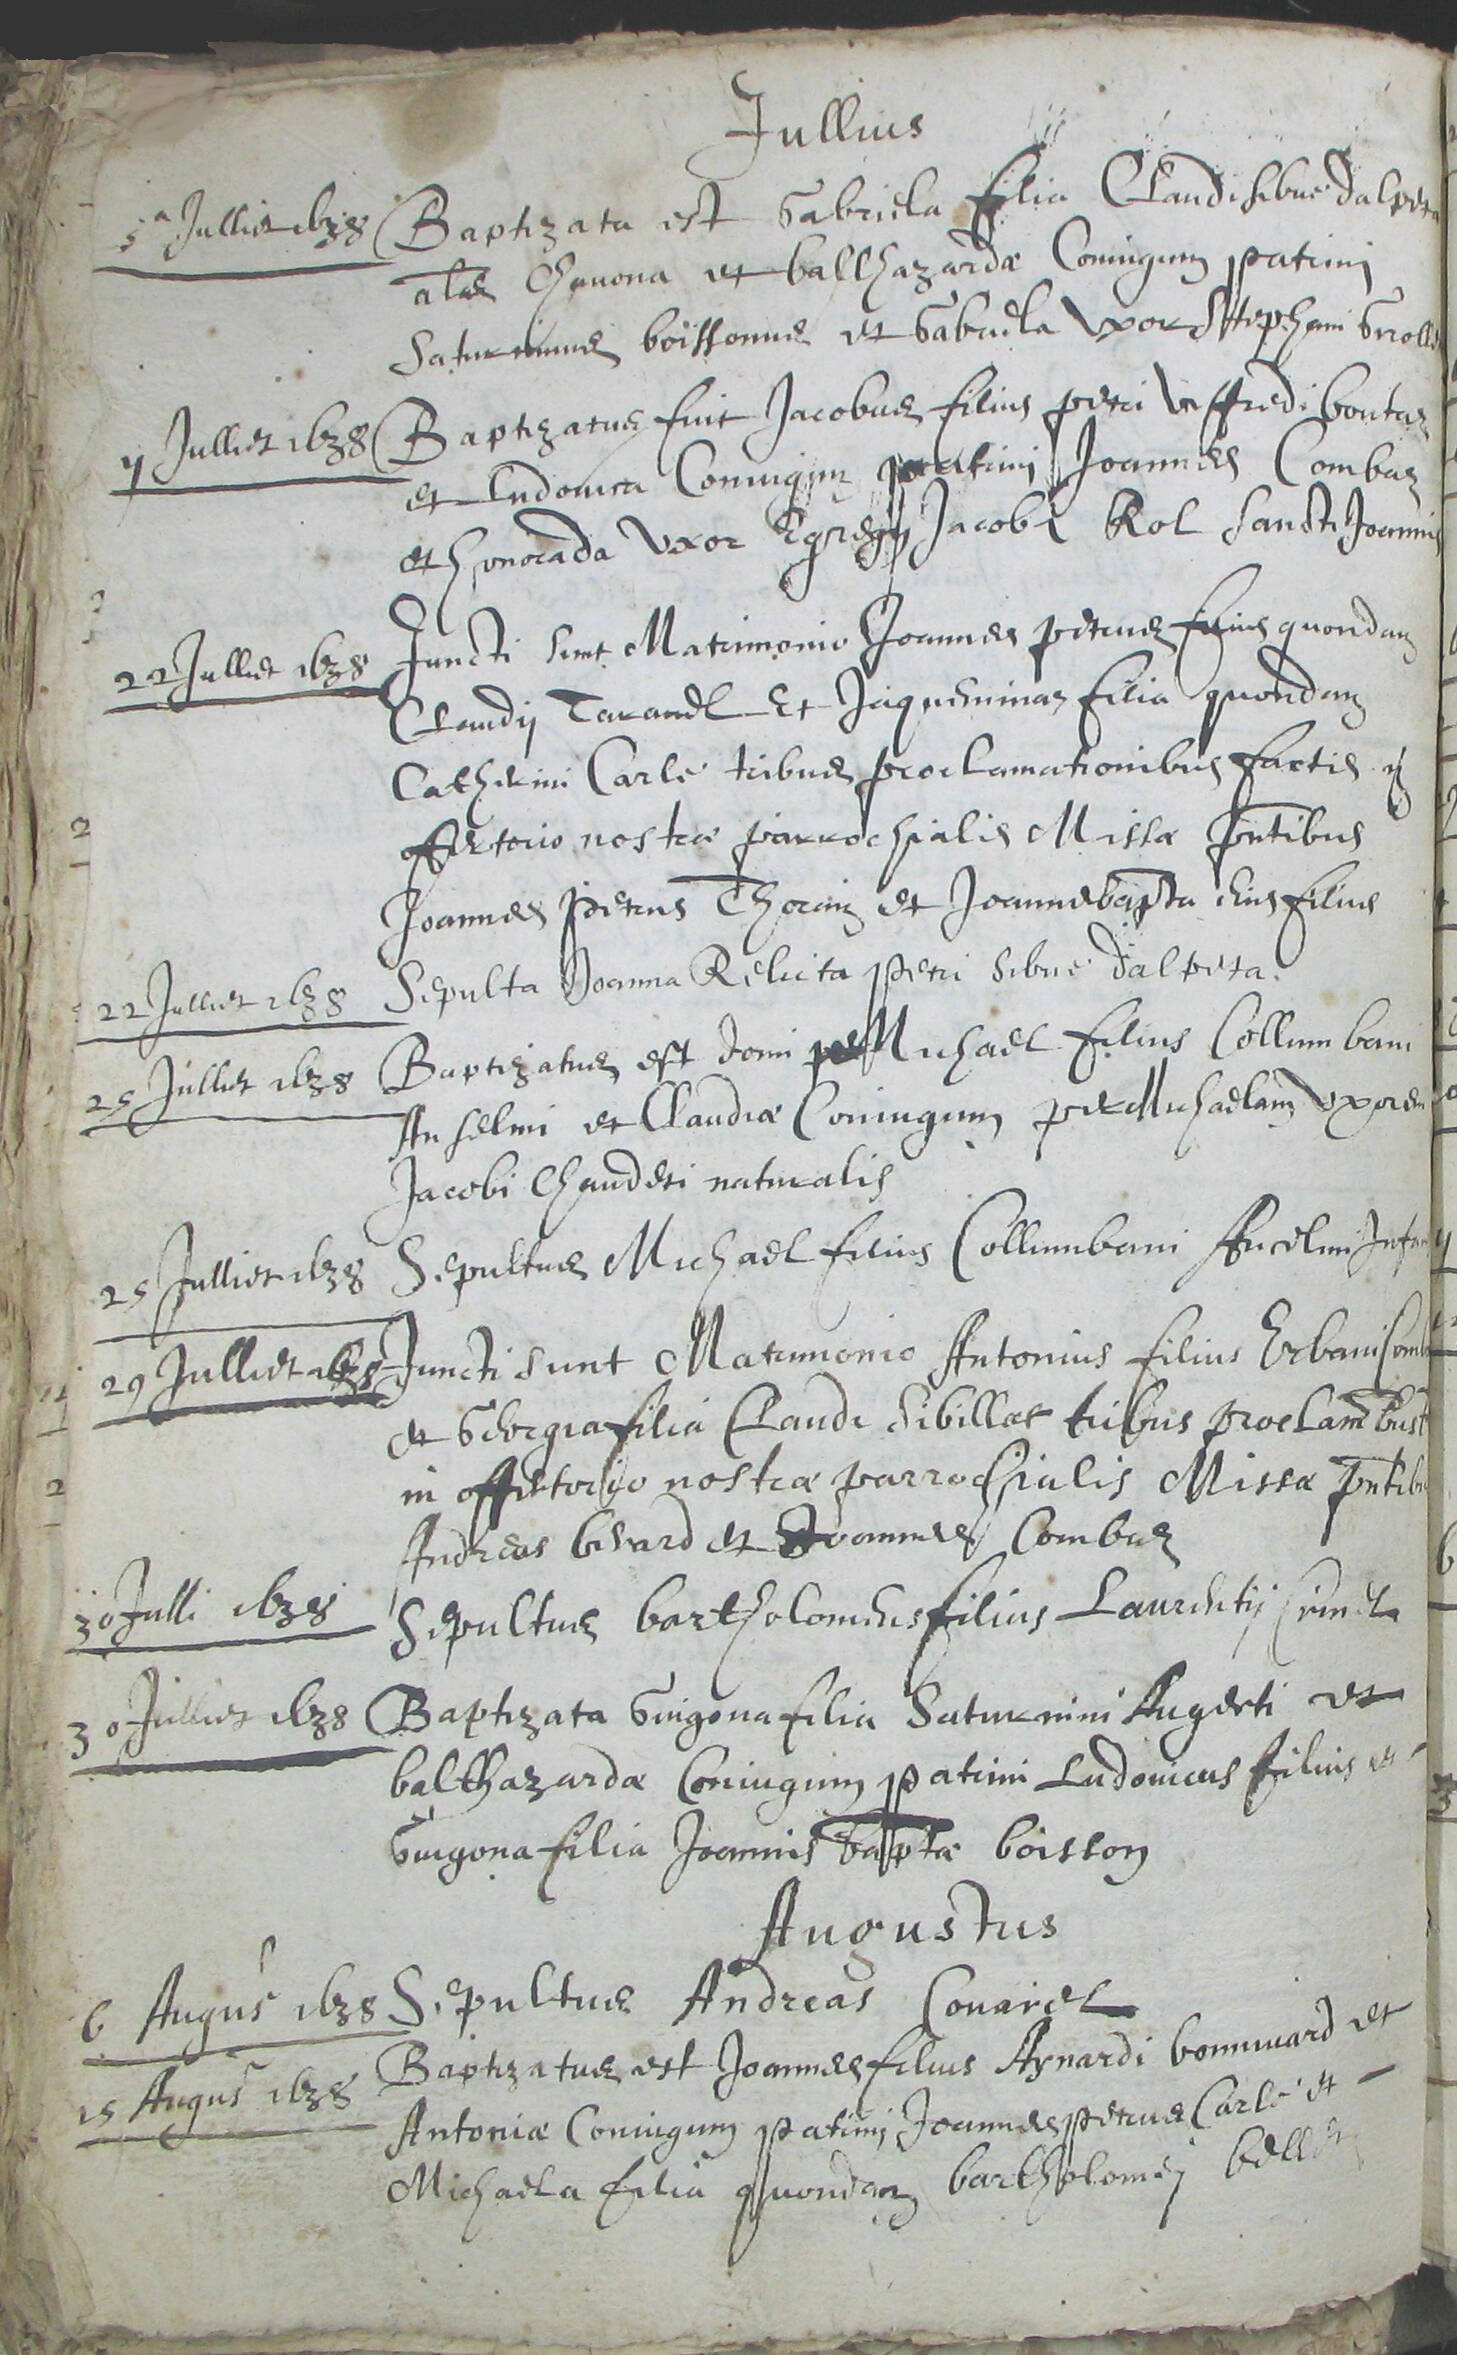 Jullius
5a Julliet 1638 Baptizata est Gabriela filia Claudi Sibue dalpeta
alias Chanona et balthazardæ Coniugum patrini
Saturninus boissonus et Gabriela Uxor Stephani
4 Julliet 1638 Baptizatus fuit Jacobus filius petri Uffredi boutas
et Ludouica Coniugum patrini Joannes Combaz
et honorada Uxor Egregij Jacobi Rol Sancti Joannis
22 Julliet 1638 Juncti sunt Matrimonio Joannes petrus filius quondam
Claudij Tarandl Et Jaquemina filia quondam
Catherini Carle tribus proclamationibus factis
offertorio nostræ parrochialis Missæ pntibus
Joannes Petrus Thorin et Joannebapta eius filius
22 Julliet 1638 Sepulta Joanna Relicta petri Sibue dalpeta.
25 Julliet 1638 Baptizatus est domi Michael filius Collumbani
Anselmi et Claudiæ Coniugum per Michaelam Uxorem
Jacobi Chauderi naturalis
25 Julliet 1638 Sepultus Michael filius Collumbani Ancelmi
29 Julliet 1638 Juncti sunt Matrimonio Antonius filius Urbani
et Georgia filia Claudi Sibillat tribus proclam
in offertorio nostræ parrochialis Missæ pntibus
Andreas berard et Joannes Combaz
30 Julli 1638 Sepultus bartholomeus filius Laurentij
30 Julliet 1638 Baptizata Guigona filia Saturnini Augerti et
balthazardæ Coniugum patrini Ludouicus filius et
Guigona filia Joannis baptæ boisson
Augustus
6 Augus 1638 Sepultus Andreas Couarel
15 Augus 1638 Baptizatus est Joannes filius Aynardi bonniuard et
Antoniæ Coniugum patrini Joannes petrus Carle et
Michaela filia quondam bartholomei